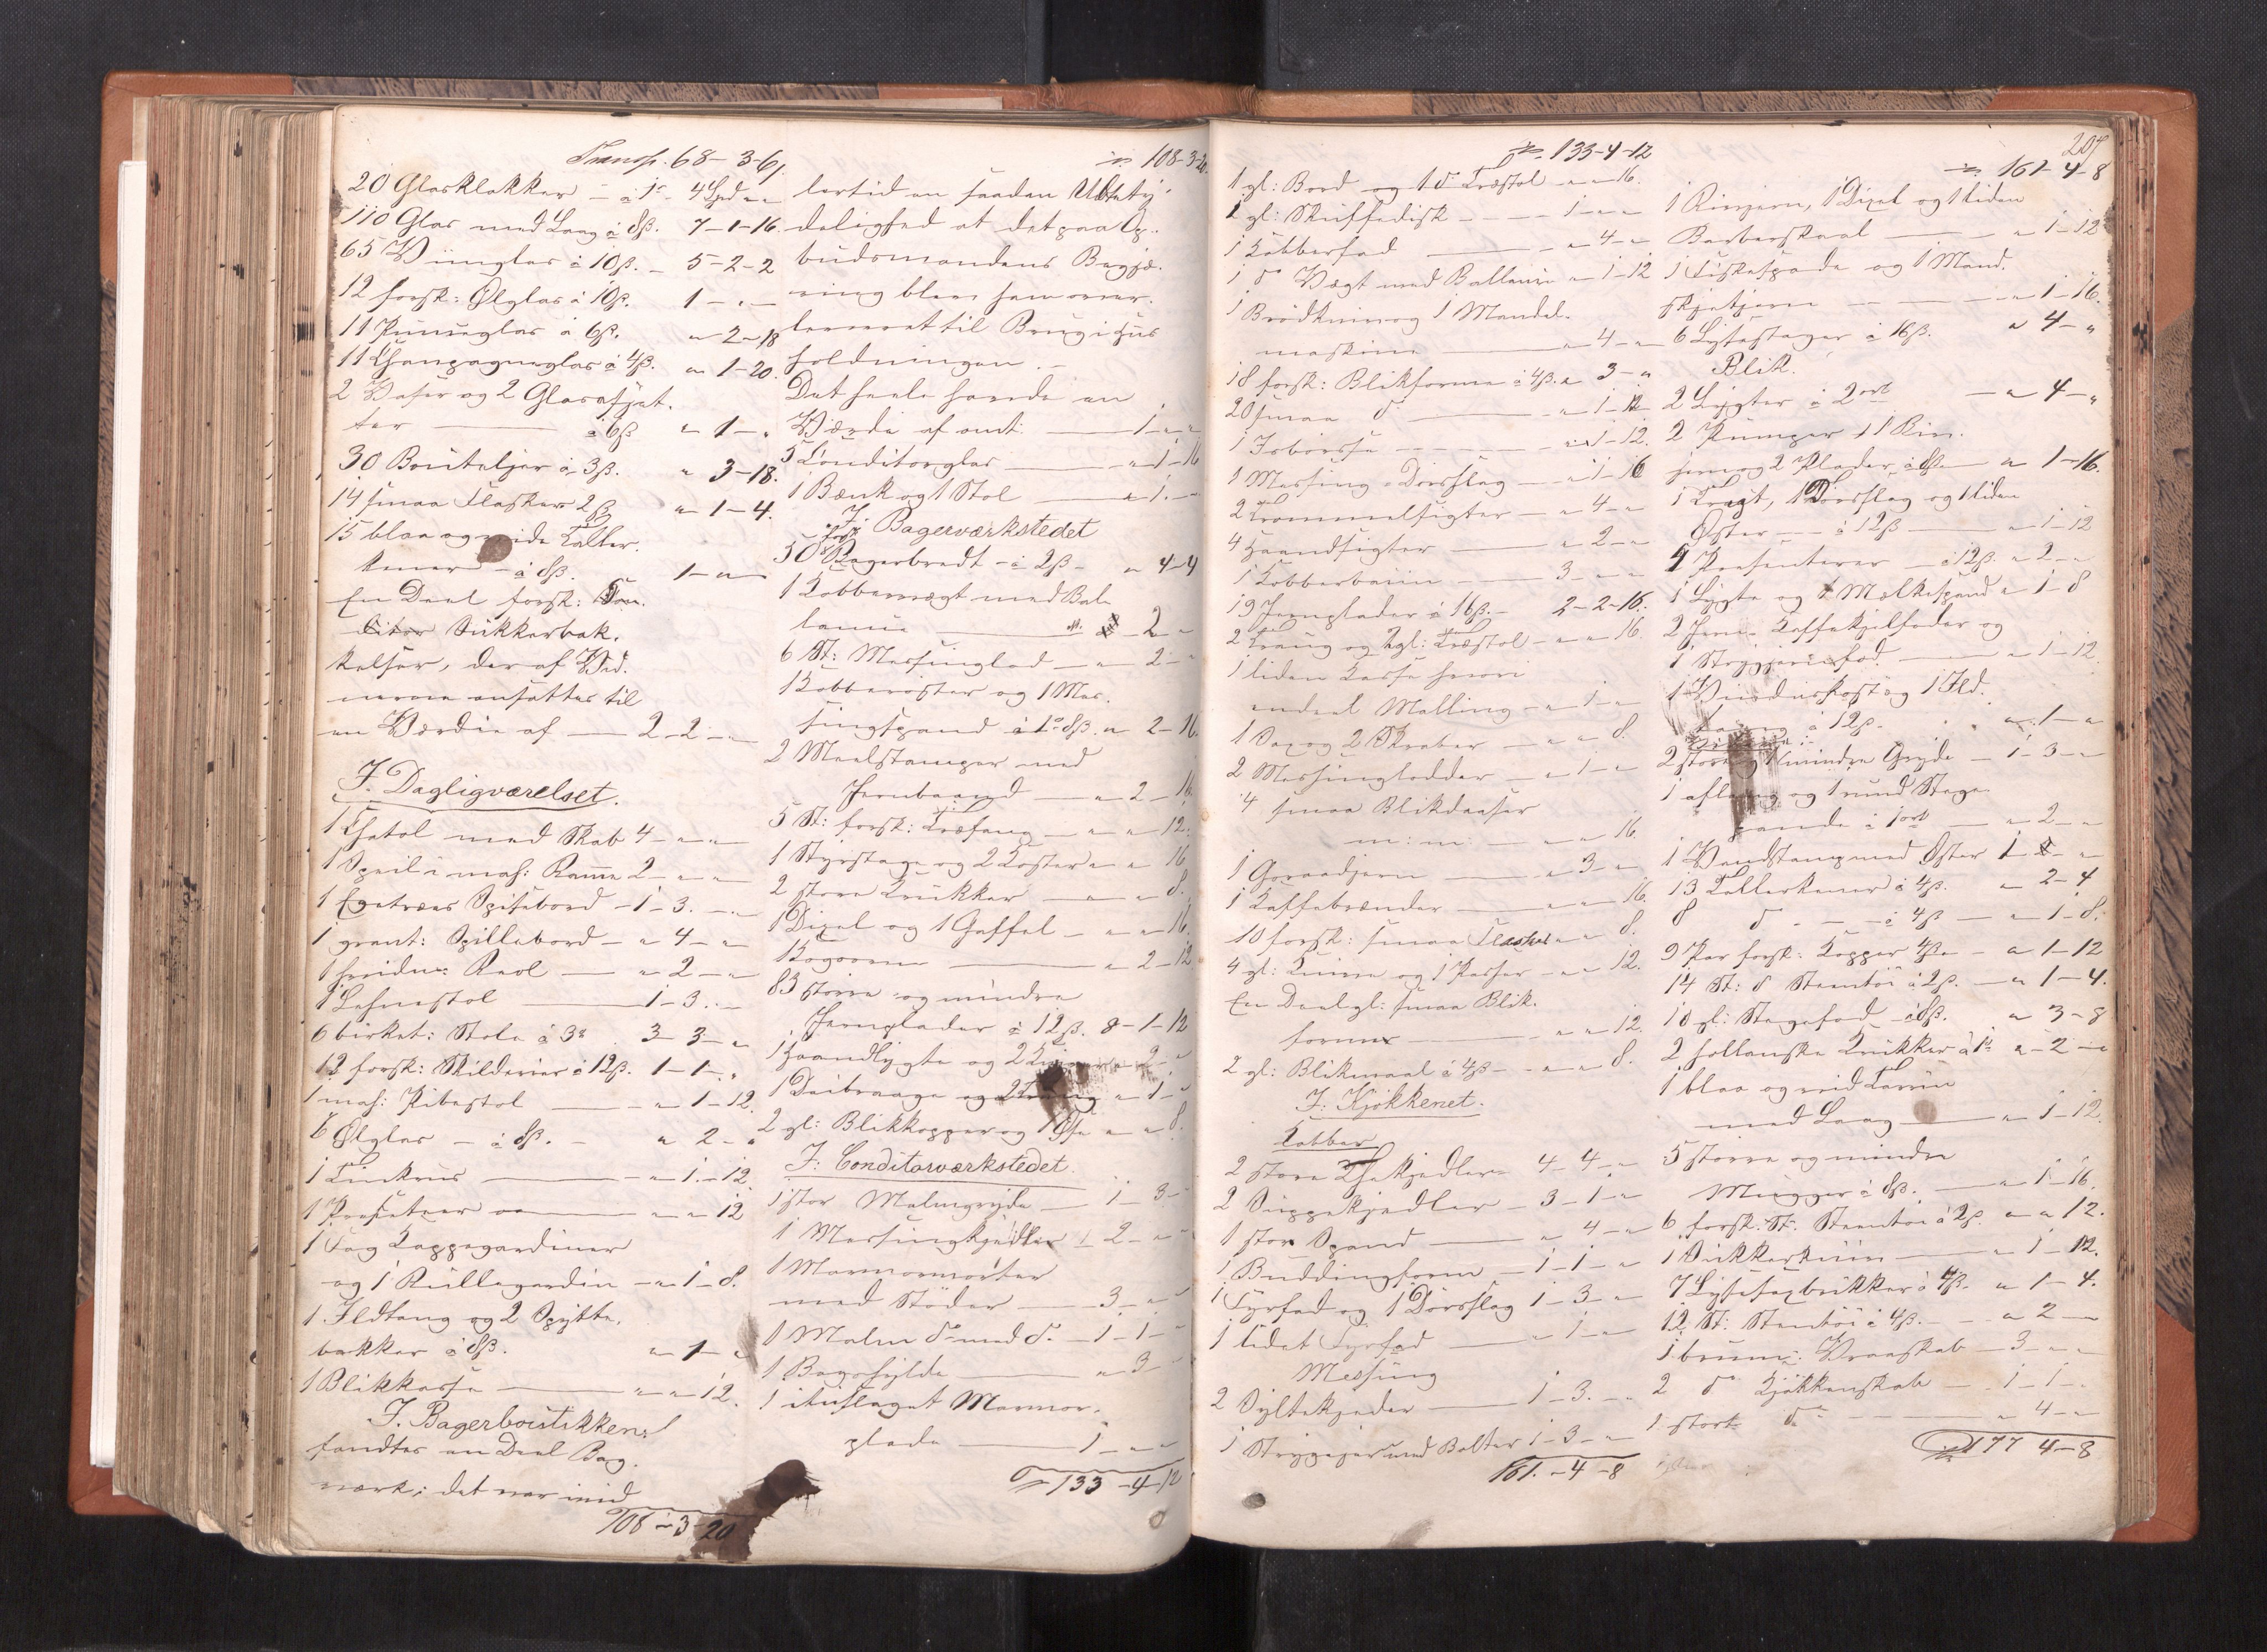 Transp. 68 - 3 - 6
20 Glasklokker - à 1 4 Spd - -
110 Glas med Laag à 8ß. 7 - 1 - 16.
65 Viinglas à 10ß. - 5 - 2 - 2
12 forsk: Ølglas à 10ß. 1 - " -
11 Punseglas à 6ß. " 2 - 18
11 Champagneglas à 4ß. " 1 - 20.
2 Vaser og 2 Glas
ter à 6ß " 1 - "
30 Bouteljer à 3ß. " 3 - 18.
14 smaa Flasker 2ß " 1 - 4.
15 blaa og hvide Taller-
kener - à 8ß. 1 - " -
En Deel forsk: Con-
ditor Sukkerbak-
kelser, der af Vid-
nerne ansattes til
en Værdie af - 2 - 2 - "
I. Dagligværelset.
1 Chatol med Skab 4 - " - "
1 Speil i mah: Ramme 2 - " - "
1 Egetræes Spisebord - 1 - 3 - "
1 Spillebord - " 4 - "
1 hvidm: Reol - " 2 - "
1 Lehnestol - 1 - 3 - "
6 birket: Stole à 3 3 - 3 - "
12 forsk: Skilderier à 12ß. 1 - 1 - "
1 mah: Pibestol - " 1 - 12.
6 Ølglas - à 8ß. - " 2 - "
1 Tinkrus - " 1 - 12.
1 Presenteer - " " 12
1 Fag Kappegardiner
og 1 Rullegardin - " 1 - 8.
1 Ildtang og 2 Spytte-
bakker à 8ß. " 1 - "
1 Blikkasse - " " 12.
I. Bagerboutikken:
fandtes en Deel Bag-
værk; det var imid
108 - 3 - 20
108 - 3 - 20.
lertid en saadan Ubety-
delighed at det paa Op-
budsmandens Begjæ-
ring blev ham over-
leveret til Brug i Huus
holdningen. -
Det heele havde en
Værdi af omt: - 1 - " - "
5 Conditorglas - " 1 - 16
1 Bænk og 1 Stol - " 1 - "
I: Bagerværkstedet
50 forsk: Bagerbredt - à 2ß - " 4 - 4
1 Kobbervægt med Bal-
lance - 2 - "
6 St: Messinglod - " 2 - "
1 Kobberøster og 1 Mes-
singspand à 1 8ß. " 2 - 16.
2 Meelstamper med
Jernbaand - " 2 - 16.
5 St: forsk: Træfang - " " 12.
1 Styrstage og 2 Koster " " 16
2 store Krukker - " " 8.
1 Dixel og 1 Gaffel - " " 16.
1 Bogovn - " 2 - 12
83 større og mindre
Jernplader à 12ß. 8 - 1 - 12
1 Haandlygte og 2 - 2 - "
1 Deibrage og 2 Traug " 1 - "
2 gl: Blikkopper og 1 Øse " " 8.
I: Conditorværkstedet.
1 stor Malmgryde - 1 - 3 -
1 Messingkjedler 1 2 - "
1 Marmormorter
med Støder - 3 - "
1 Malm do med do - 1 - 1 - "
1 Bogehylde - " 3 - "
1 ituslaget Marmor-
plade - 1 - " - "
133 - 4 - 12
133 - 4 - 12
1 gl: Bord og 1 do Træstol - " " 16.
1 gl: Skuffedisk - 1 - " - "
1 Kobberfad - " 4 - "
1 do Vægt med Ballance " 1 - 12
1 Brødkniv og 1 Mandel-
maskine - " 4 - "
18 forsk: Blikforme à 4ß. " 3 - "
20 smaa do - " 1 - 12
1 - " 1 - 12.
1 Messing Dorslag - " 1 - 16
2 Trommelsigter - " 4 - "
4 Haandsigter - " 2 - "
1 Kobber - 3 - " - "
19 Jernplader à 16ß. - 2 - 2 - 16.
2 Traug og 2 gl: Træstol - " " 16.
1 liden Kasse hvori
endeel Malling - " 1 - "
1 Sax og 2 Skraber - " " 8.
2 Messinglodder - " 1 - "
4 smaa Blikdaaser
m: m: - " " 16.
1 Goraadjern - " 3 - "
1 Kaffebrænder - " " 16.
10 forsk: smaa Flasker " " 8.
4 gl: Knive og 1 Passer - " " 12.
En Deel gl: smaa Blik-
former - " " 12.
2 gl: Blikmaal à 4ß - " " 8.
I: Kjøkkenet.
Kobber
2 store Theekjedler 4 - 4 - "
2 Suppekjedler - 3 - 1 - "
1 stor Spand - " 4 - "
1 Buddingform - 1 - 1 - "
1 Fyrfad og 1 Dørslag 1 - 3 - "
1 lidet Fyrfad - " 1 - "
Messing
2 Syltekjedler - 1 - 3 - "
1 Strygejern med Bolter 1 - 3 - "
161 - 4 - 8
207
161 - 4 - 8
1 Rivjern, 1 Dixel og 1 liden
Barberskaal - " 1 - 12
1 Fiskespade og 1 Mand-
skjetjern - " 1 - 16.
6 Lysestager à 16ß. " 4 - "
Blik.
2 Lygter à 2 ort - " 4 - "
2 Pumper 1 Riv-
jern og 2 Plader à 8ß " 1 - 16.
1 Tragt, 1 Dørslag og 1 liden
Øster - à 12ß - " 1 - 12
4 Presenterer - à 12ß. " 2 - "
1 Lygte og 1 Mælkespand " 1 - 8
2 Jern Kaffekjelfoder og
1 Strygjernsfod - " 1 - 12.
1 og 1 Ild-
à 12ß. " 1 - "
2 store og 1 mindre Gryde - 1 - 3 - "
1 aflang og 1 rund Stege-
pande à 1 ort - " 2 - "
1 Vandstamp med Øster 1 - " - "
13 Tallerkener à 4ß. " 2 - 4
8 do - à 4ß - " 1 - 8.
9 Par forsk: Kopper 4ß - " 1 - 12
14 St: do Steentøi à 2ß. - " 1 - 4.
10 gl: Stegefad à 8ß. " 3 - 8
2 hollanske Krukker à 1 " 2 - "
1 blaa og hvid Terrin
med Laag - " 1 - 12.
5 større og mindre
Mugger à 8ß. - " 1 - 16.
6 forsk: St: Steentøi à 2ß " " 12.
1 Sukkerkniv - " 1 - 12.
7 à 4ß. " 1 - 4.
12 St: Steentøi à 4ß. - " 2 - "
1 brunm: Vraaskab - 3 - " - "
2 do Kjøkkenskabe - 1 - 1 - "
1 stort do - " 4 - "
177 4 - 8